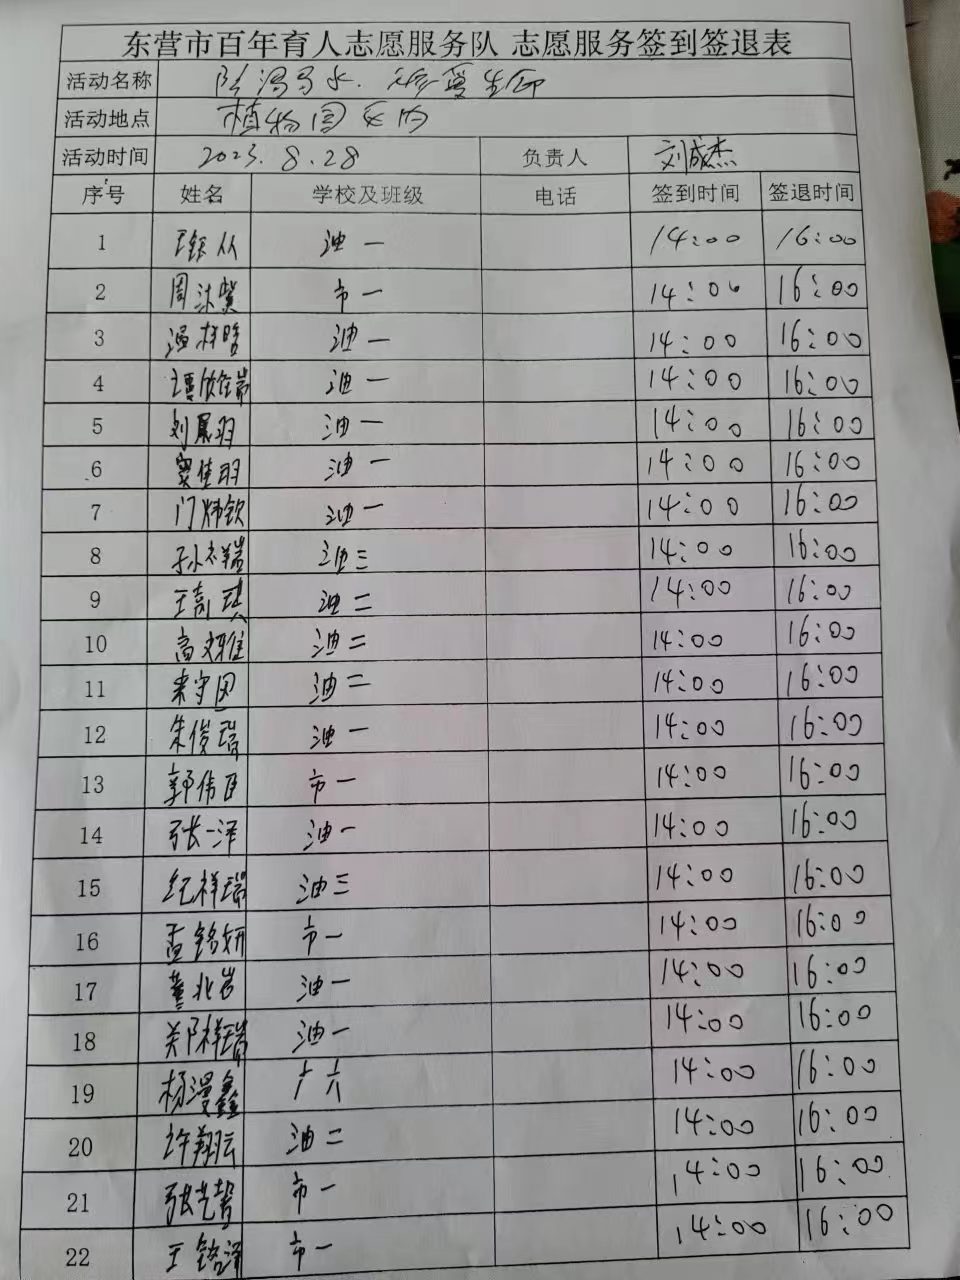 东营市百年育人志愿服务队 志愿服务签到签退表
活动名称 防溺水.珍爱生命
活动地点 植物园区内
活动时间 2023.8.28 负责人 刘成杰
序号 姓名 学校及班级 电话 签到时间 签退时间
1 油一 14:00 16:00
2 周沐萱 市一 14:00 16:00
3 油一 14:00 16:00
4 油一 14:00 16:00
5 刘晨羽 油一 14:00 16:00
6 窦佳羽 油一 14:00 16:00
7 门炜钦 油一 14:00 16:00
8 孙祥瑞 油三 14:00 16:00
9 王嘉琪 油二 14:00 16:00
10 高雅 油二 14:00 16:00
11 守因 油二 14:00 16:00
12 朱俊瑞 油一 14:00 16:00
13 郭伟 市一 14:00 16:00
14 张一泽 油一 14:00 16:00
15 纪祥瑞 油三 14:00 16:00
16 孟铭妍 市一 14:00 16:00
17 董兆岩 油一 14:00 16:00
18 郑祥瑞 油一 14:00 16:00
19 杨漫鑫 广六 14:00 16:00
20 许翔云 油二 14:00 16:00
21 张艺馨 市一 14:00 16:00
22 王铭泽 市一 14:00 16:00